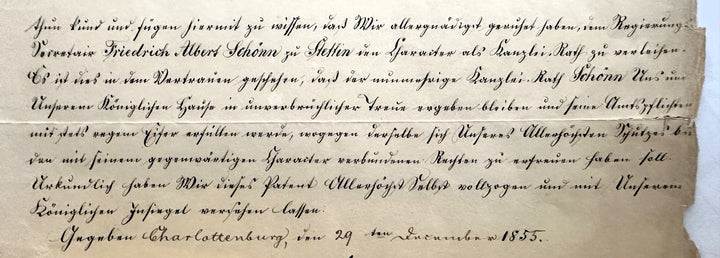 thun kund und fügen hiermit zu wissen, daß Wir allergnädigst geruhet haben, dem Regierungs-
Secretair Friedrich Albert Schönn zu Stettin den Character als Kanzlei-Rath zu verleihen.
Es ist dies in dem Vertrauen geschehen, daß der nunmehrige Kanzlei-Rath Schönn Uns und
Unserem Königlichen Hause in unverbrüchlicher Treue ergeben bleiben und seine Amtspflichten
mit stets regem Eifer erfüllen werde, wogegen derselbe sich Unseres Allerhöchsten Schutzes bei
den mit seinem gegenwärtigen Character verbundenen Rechten zu erfreuen haben soll.
Urkundlich haben Wir dieses Patent Allerhöchst Selbst vollzogen und mit Unserem
Königlichen Insiegel versehen lassen.
Gegeben Charlottenburg, den 29 ten December 1855.